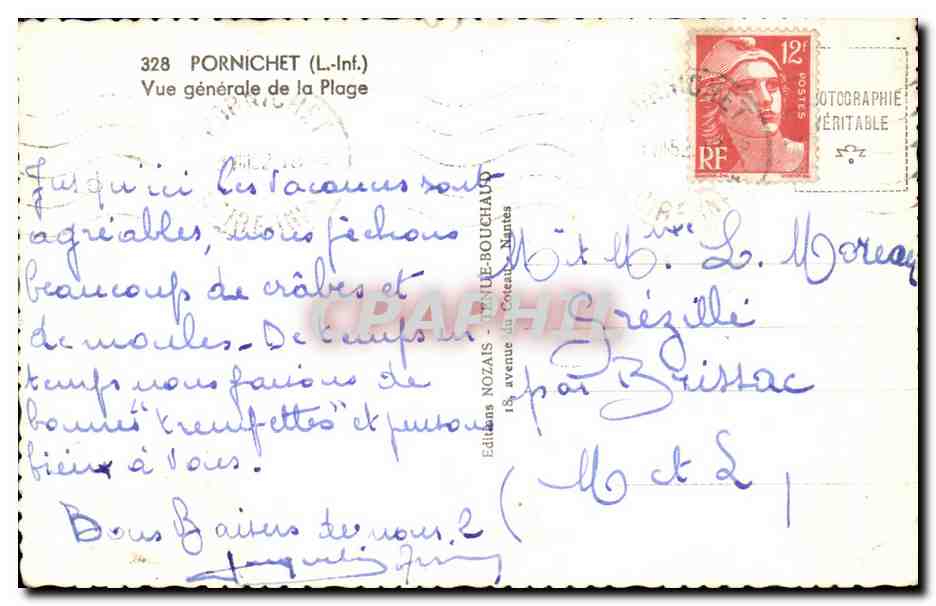 328 PORNICHET (L.-Inf.)
Vue générale de la Plage
12F
POSTES
RF
PHOTOGRAPHIE
VÉRITABLE
PORNICHET
Jusqu'ici les vacances sont
agréables, nous pêchons
beaucoup de crâbes et
de moules. De temps en
temps nous faisons de
bonnes "trempettes" et pensons
bien à vous.
Bons Baisers de nous 2
Jacqueline
Editions NOZAIS - TENLE-BOUCHAUD
18, avenue du Coteau, Nantes
M et Mme L. Moreau
Grézillé
par Brissac
(M et L)
CPAPHIL